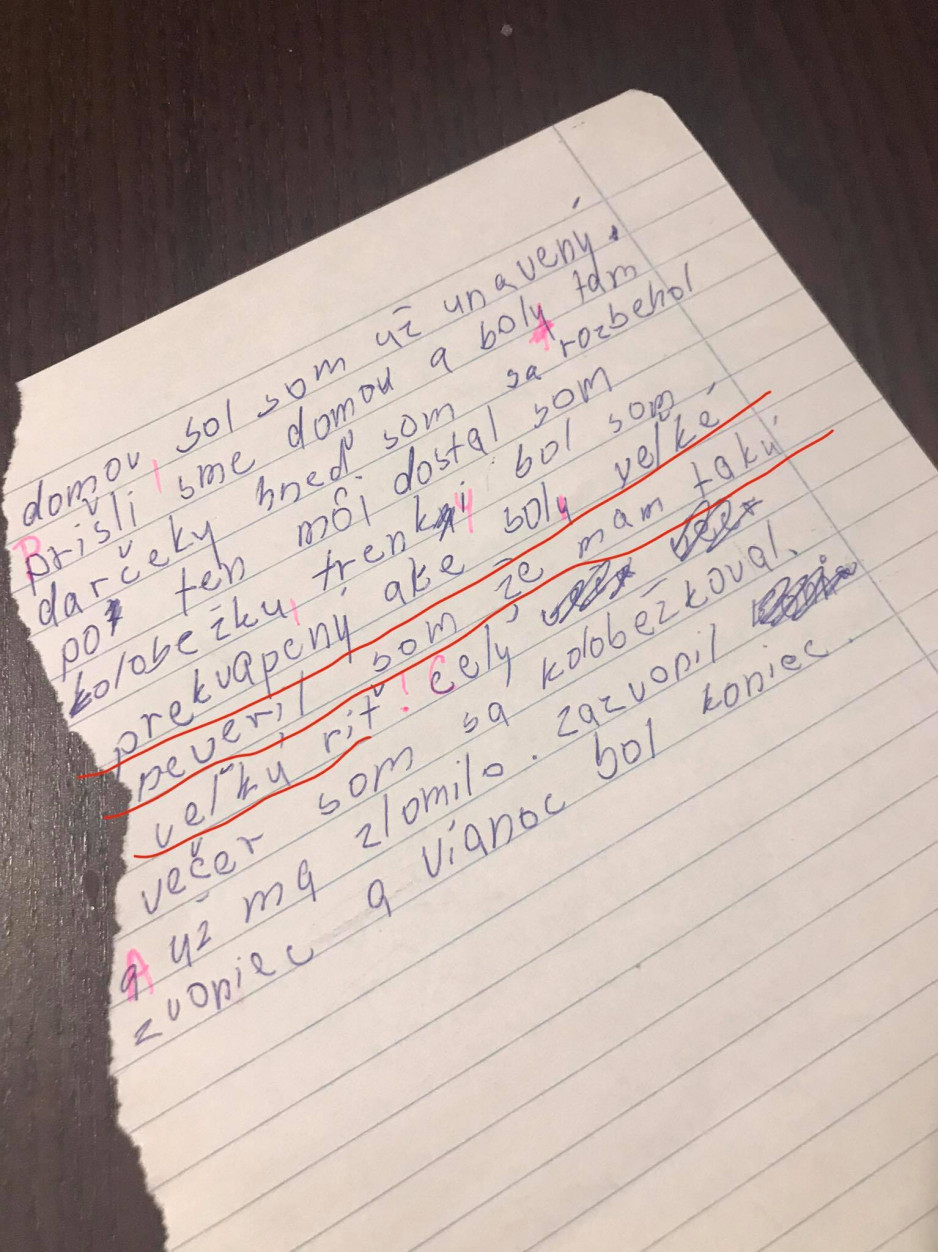 domov šol som už unavený.
prišli sme domou a boly tam
darčeky hneď som sa rozbehol
po ten môj dostal som
kolobežku, trenky bol som
prekvapený ake boly veľké
peveril som že mam takú
veľkú riť! Celý
večer som sa kolobežkoval.
A už ma zlomilo. zazvonil
zvoniec a vianoc bol koniec.